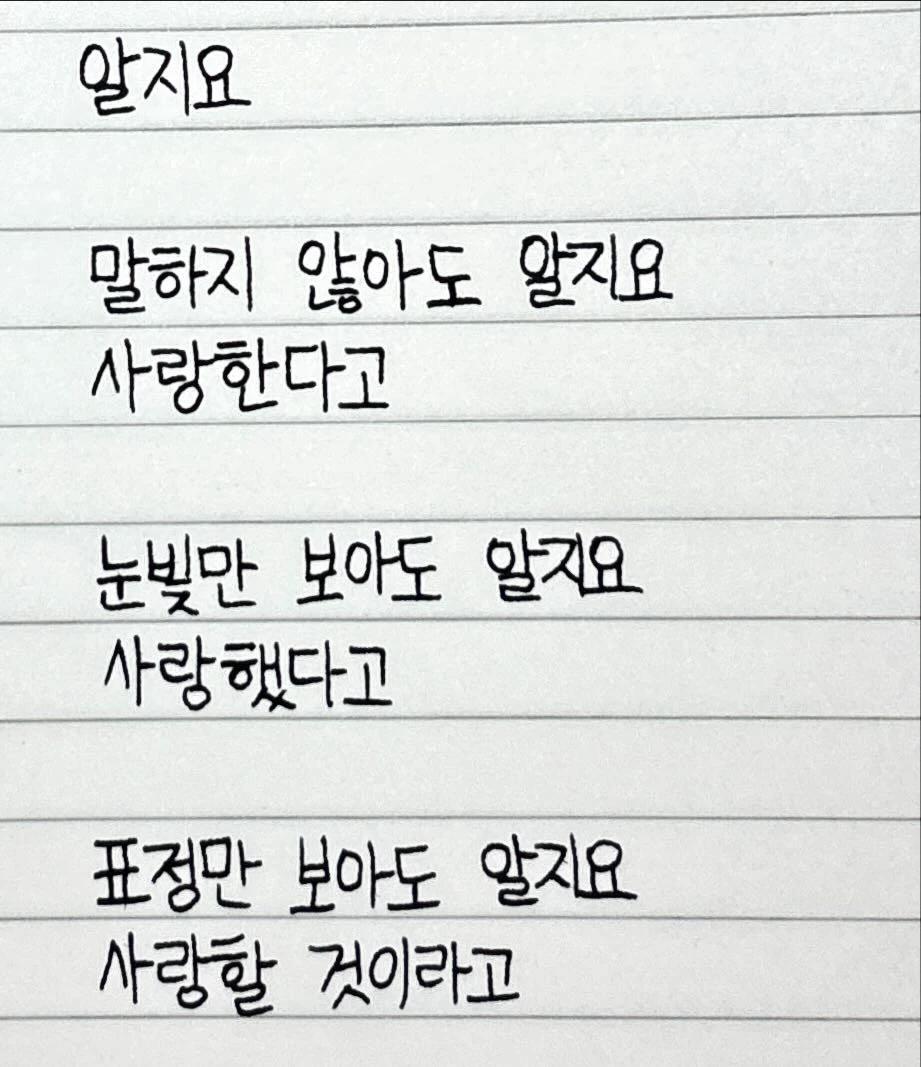 알지요
말하지 않아도 알지요
사랑한다고
눈빛만 보아도 알지요
사랑했다고
표정만 보아도 알지요
사랑할 것이라고